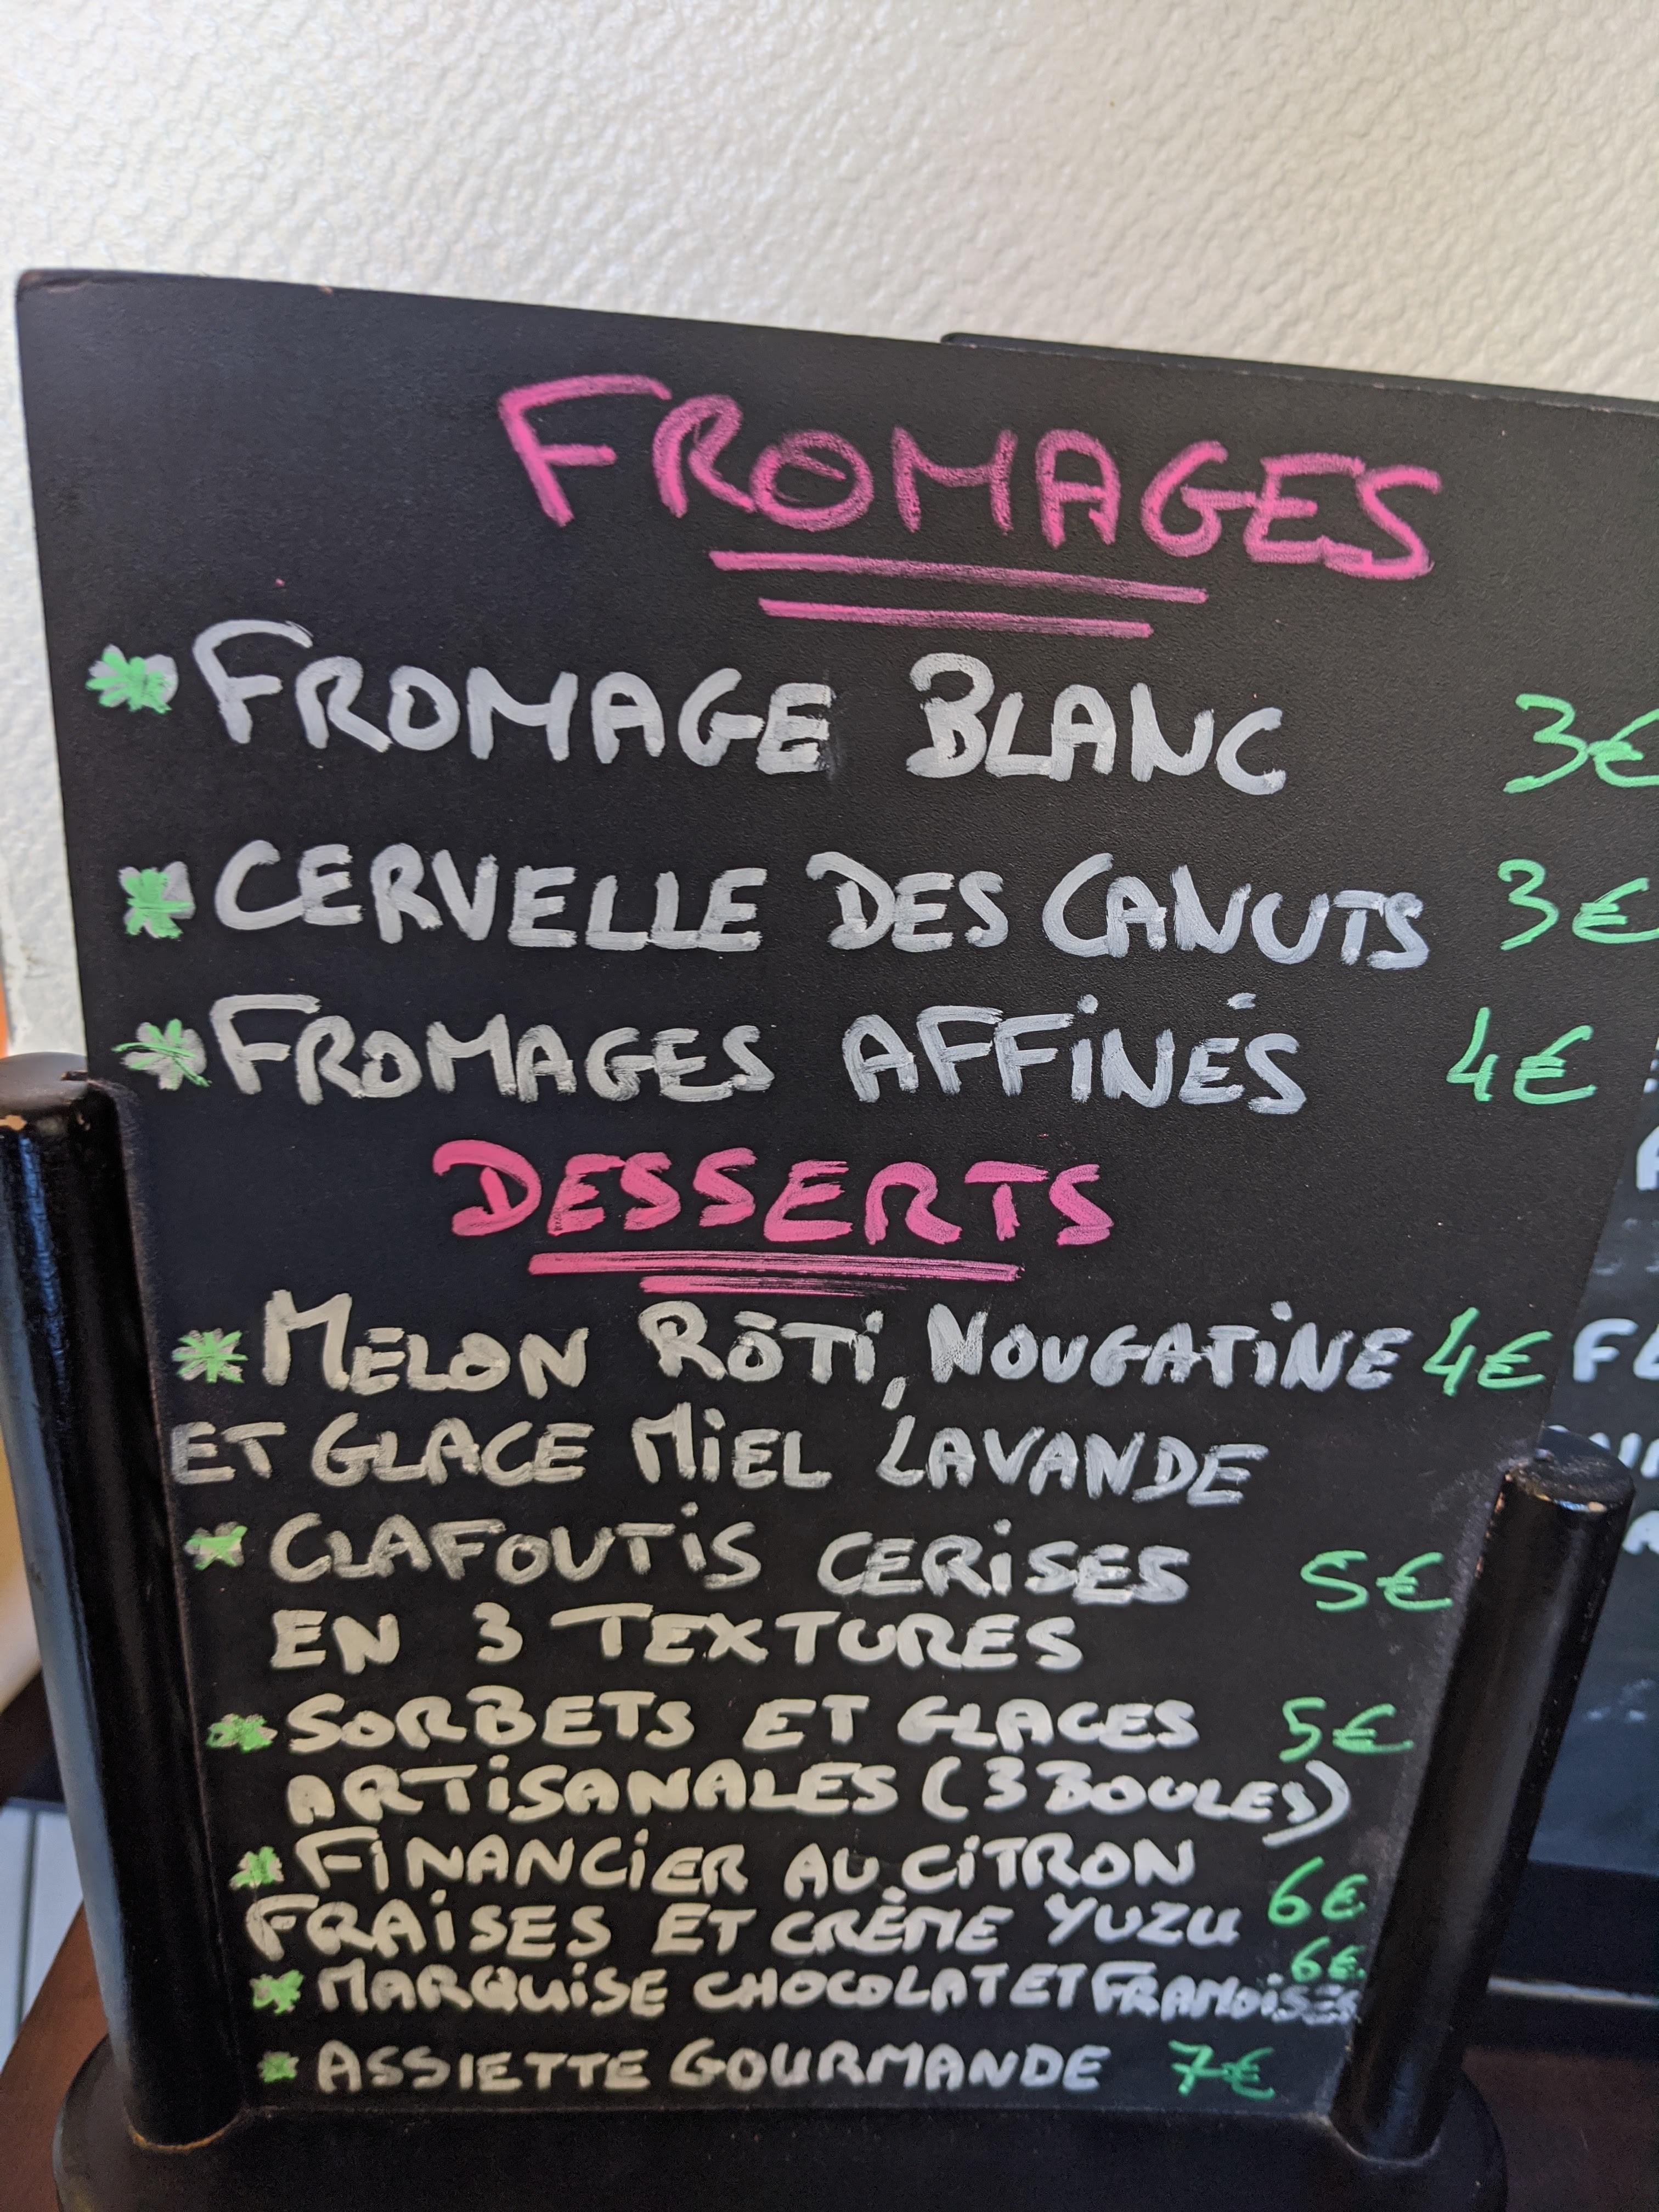 FROMAGES
* FROMAGE BLANC 3€
* CERVELLE DES CANUTS 3€
* FROMAGES AFFINÉS 4€
DESSERTS
* MELON RÔTI, NOUGATINE 4€
ET GLACE MIEL LAVANDE
* CLAFOUTIS CERISES 5€
EN 3 TEXTURES
* SORBETS ET GLACES 5€
ARTISANALES (3 BOULES)
* FINANCIER AU CITRON 6€
FRAISES ET CRÈME YUZU
* MARQUISE CHOCOLAT ET FRAMOISES 6€
* ASSIETTE GOURMANDE 7€